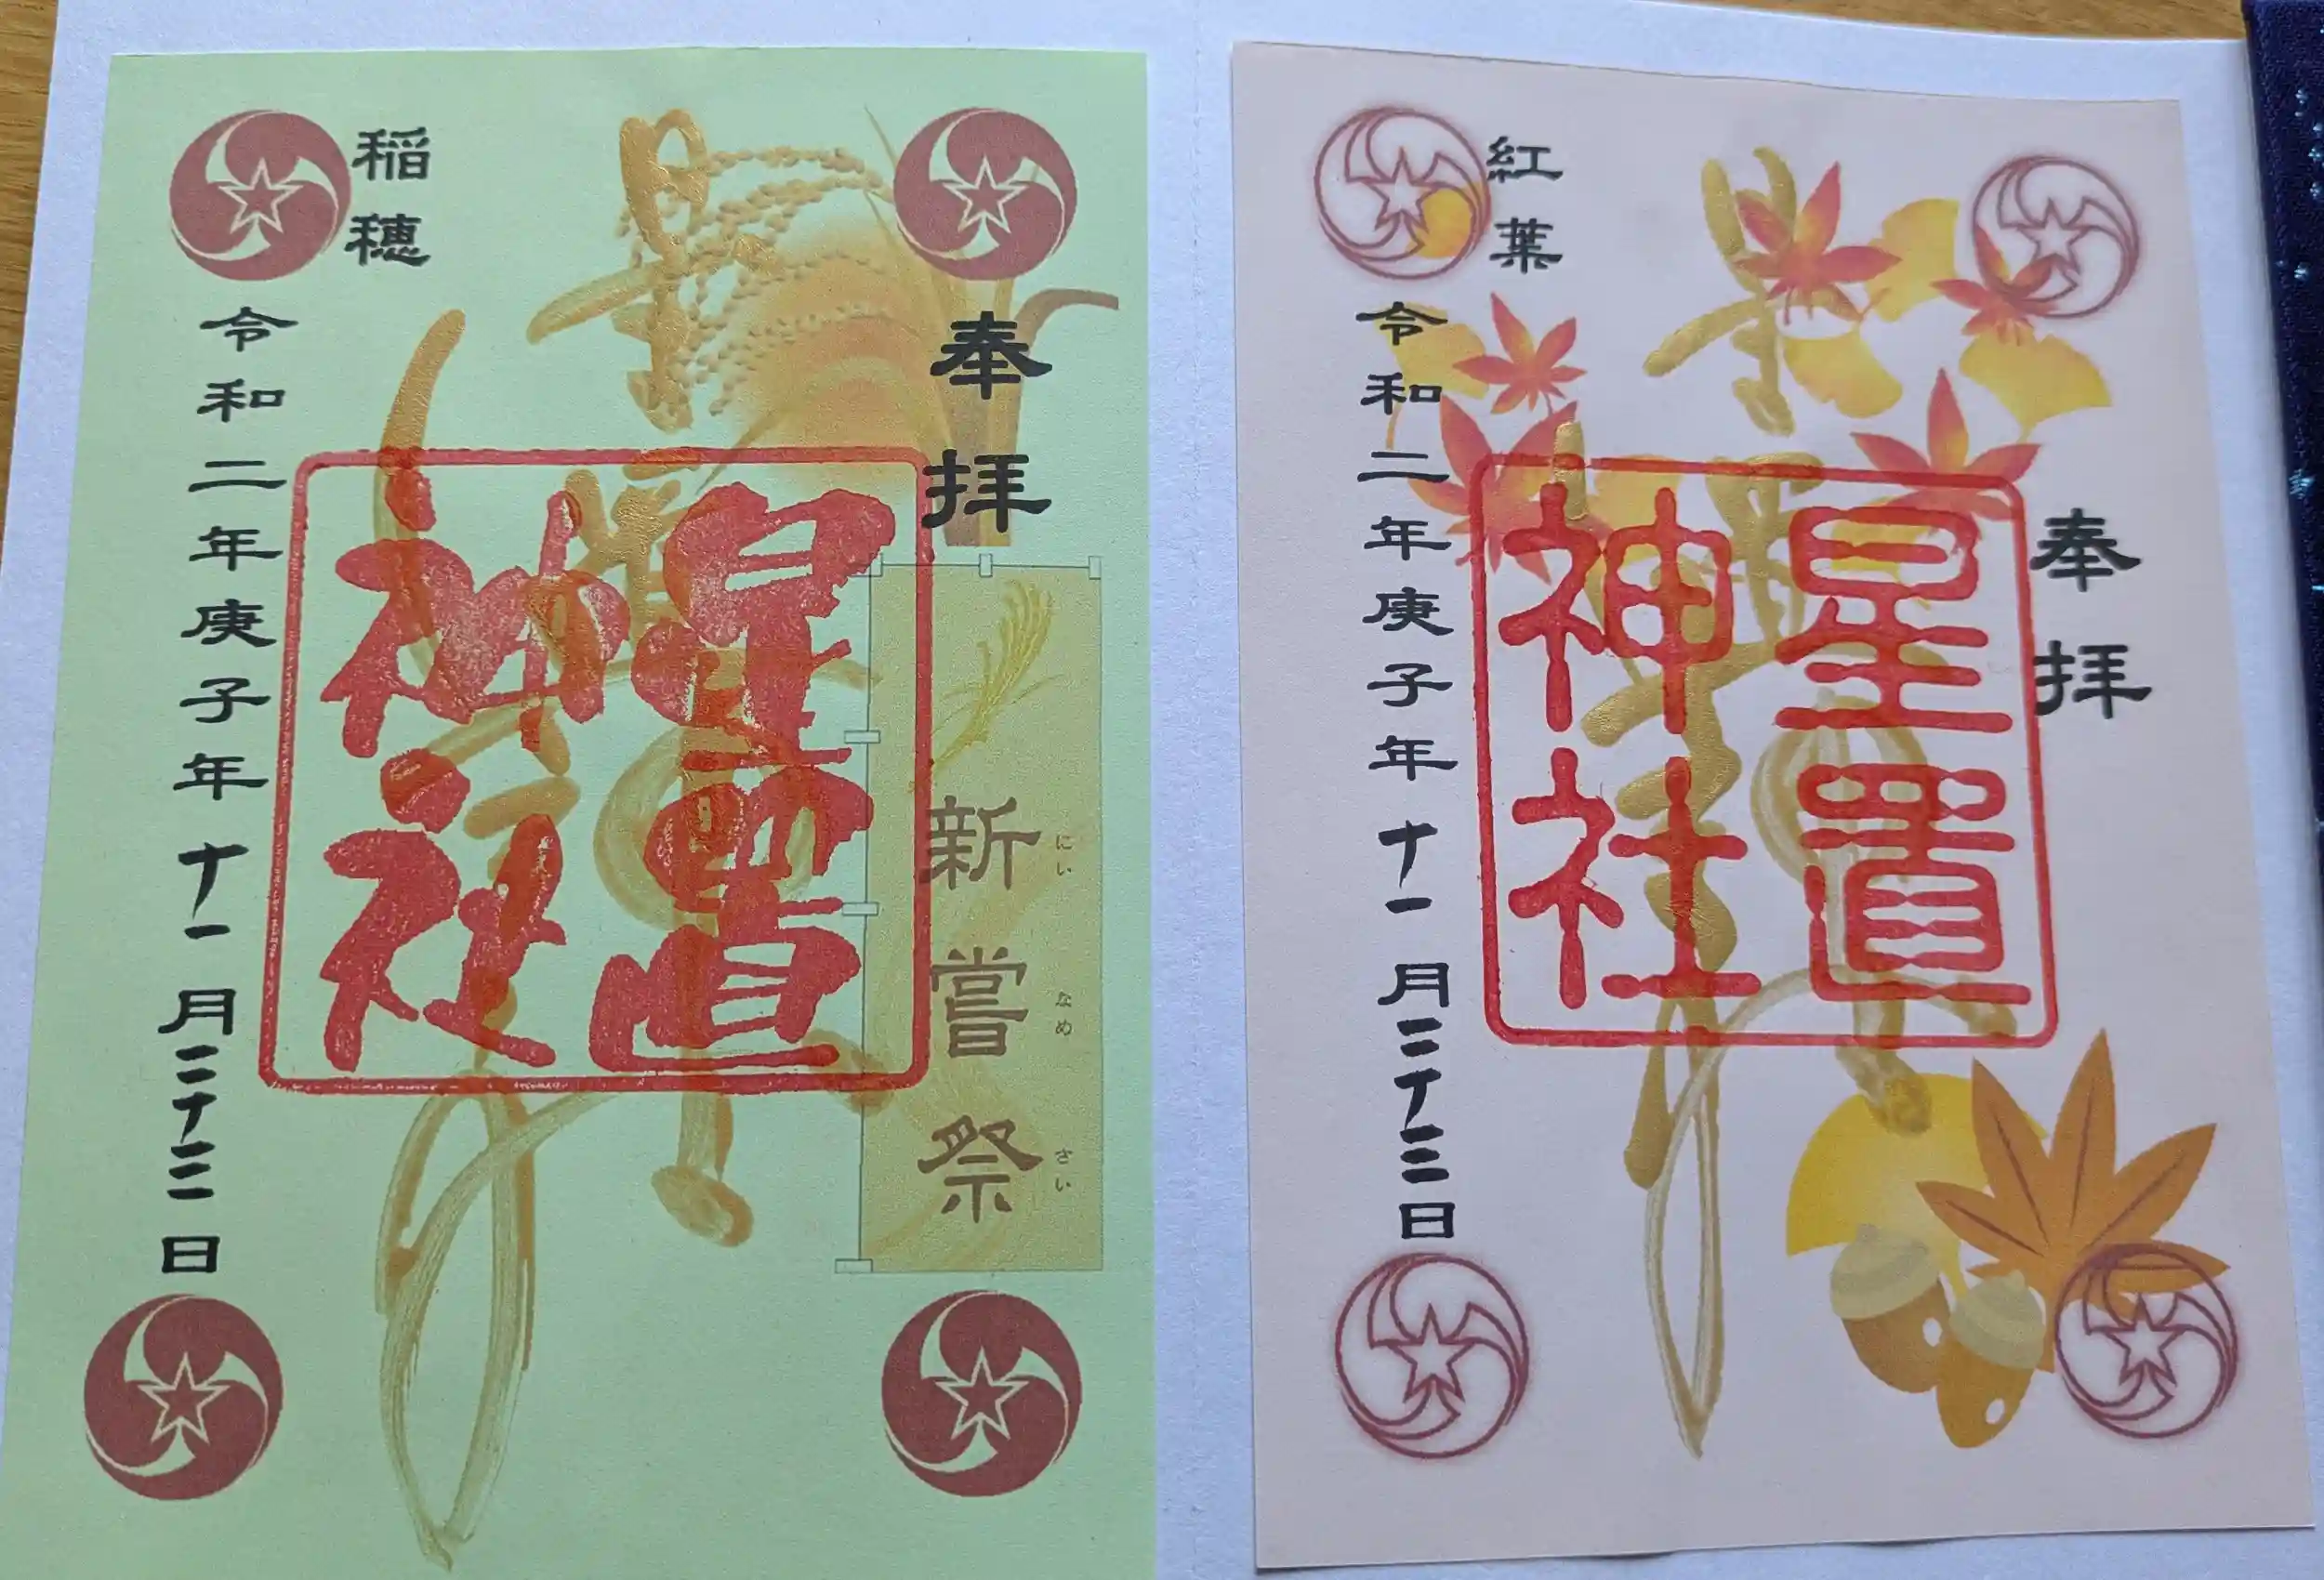 奉拝
新嘗祭
にいなめさい
星置神社
星置
神社
稲穂
令和二年庚子年十一月二十三日
奉拝
星置神社
星置
神社
紅葉
令和二年庚子年十一月二十三日